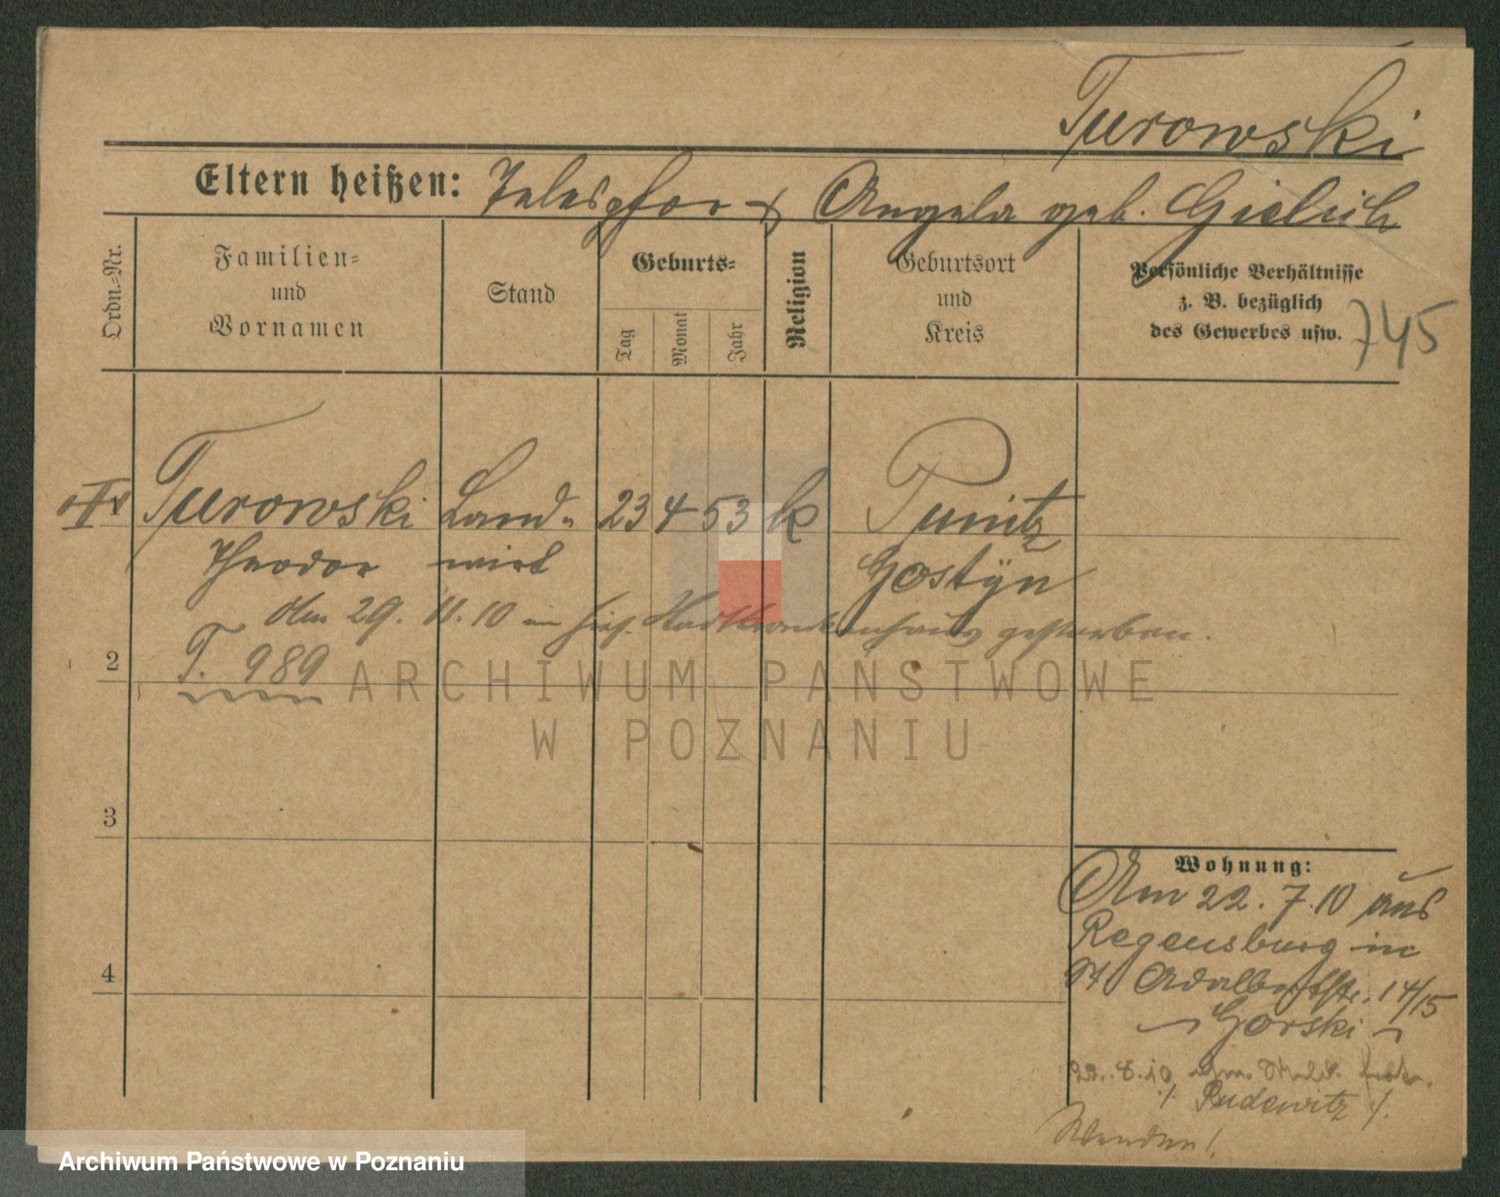 Turowski
Eltern heißen: Telesphor & Angela geb. Gielich
Ordn.-Nr.
Familien-
und
Vornamen
Stand
Geburts-
Tag
Monat
Jahr
Religion
Geburtsort
und
Kreis
Persönliche Verhältnisse
z. B. bezüglich
des Gewerbes usw.
745
Turowski Land- 23 4 53 k Punitz
Theodor wirt Gostÿn
Am 29. 11. 10 im hies. Stadtkrankenhaus gestorben.
2 T. 989
3
4
Wohnung:
Am 22. 7. 10 aus
Regensburg in
St Adalbertstr. 14/15
Gorski
22. 8. 10
Pudewitz
Wenden!
ARCHIWUM PAŃSTWOWE
W POZNANIU
Archiwum Państwowe w Poznaniu